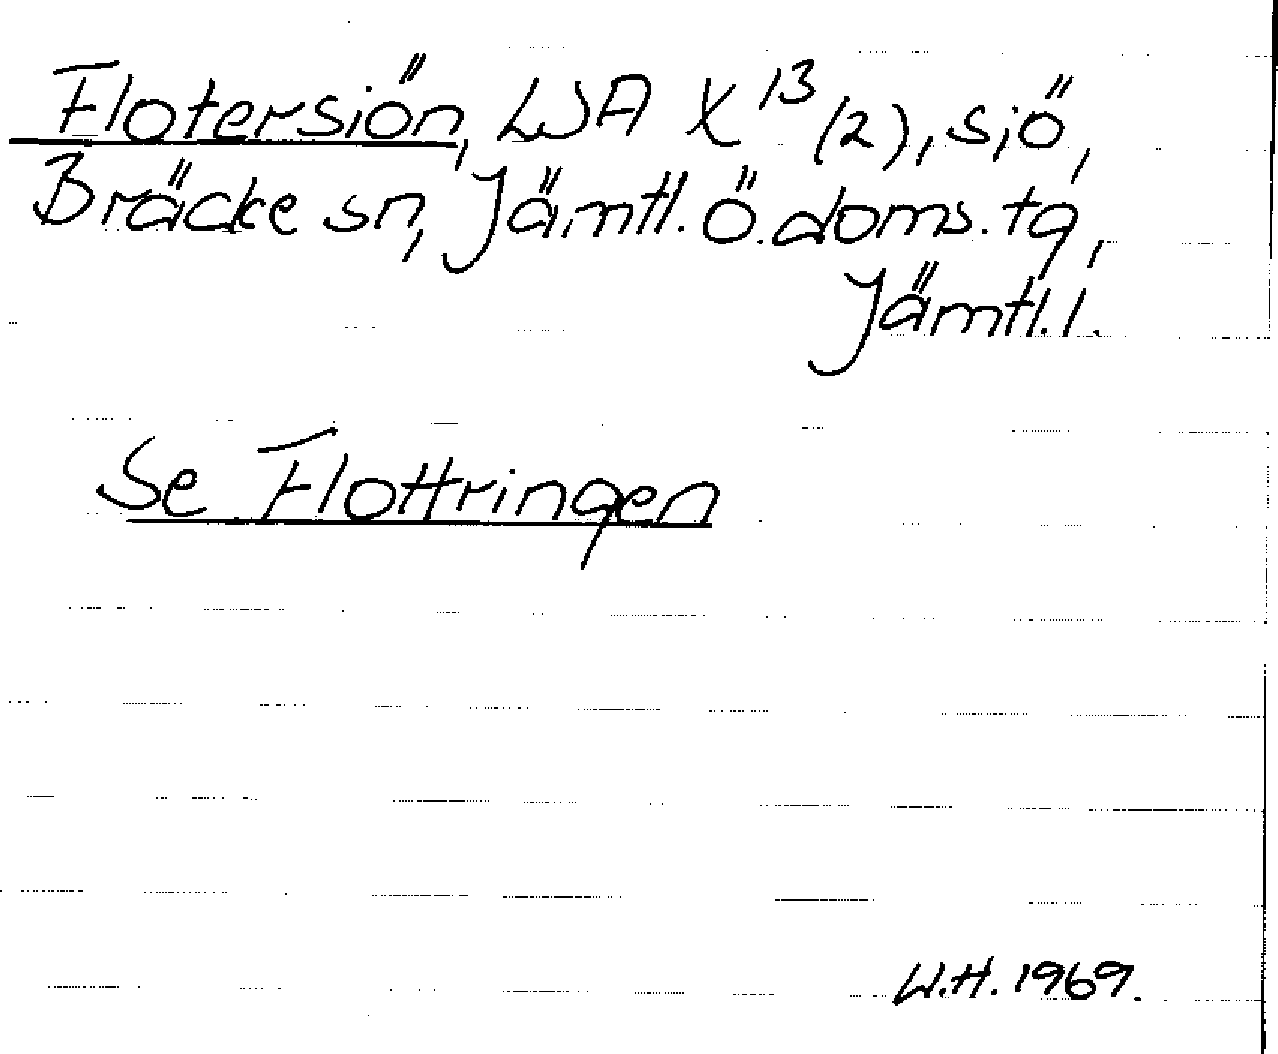 Flotersiön, LSA X13 (2), sjö,
Bräcke sn, Jämtl. Ö. doms. tg,
Jämtl. l.
Se Flottringen
W.H. 1969.